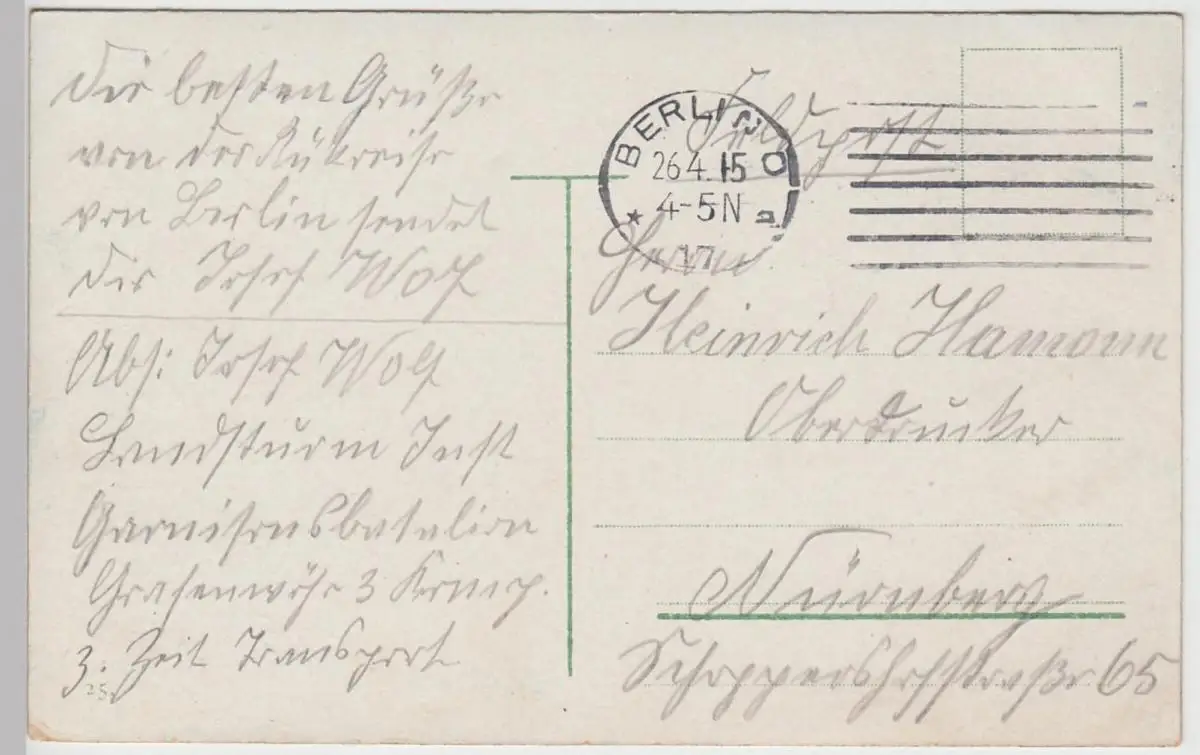 Die besten Grüße
von der Rükreise
von Berlin sendet
dir Josef Wolf
Abs: Josef Wolf
Landsturm Inft
Garnisonsbatalion
Grafenwöhr 3 Komp.
Z. Zeit Transport
25.
BERLIN O
26.4.15
4-5N
★ a
17
Feldpost
Herrn
Heinrich Hamann
Oberdrucker
Nürnberg
Schoppershofstraße 65